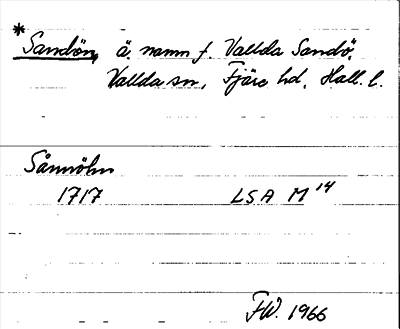 * Sandön, ä. namn f. Vallda Sandö,
Vallda sn, Fjäre hd, Hall. l.
Sånnöhn
1717 LSA M 14
F.W. 1966